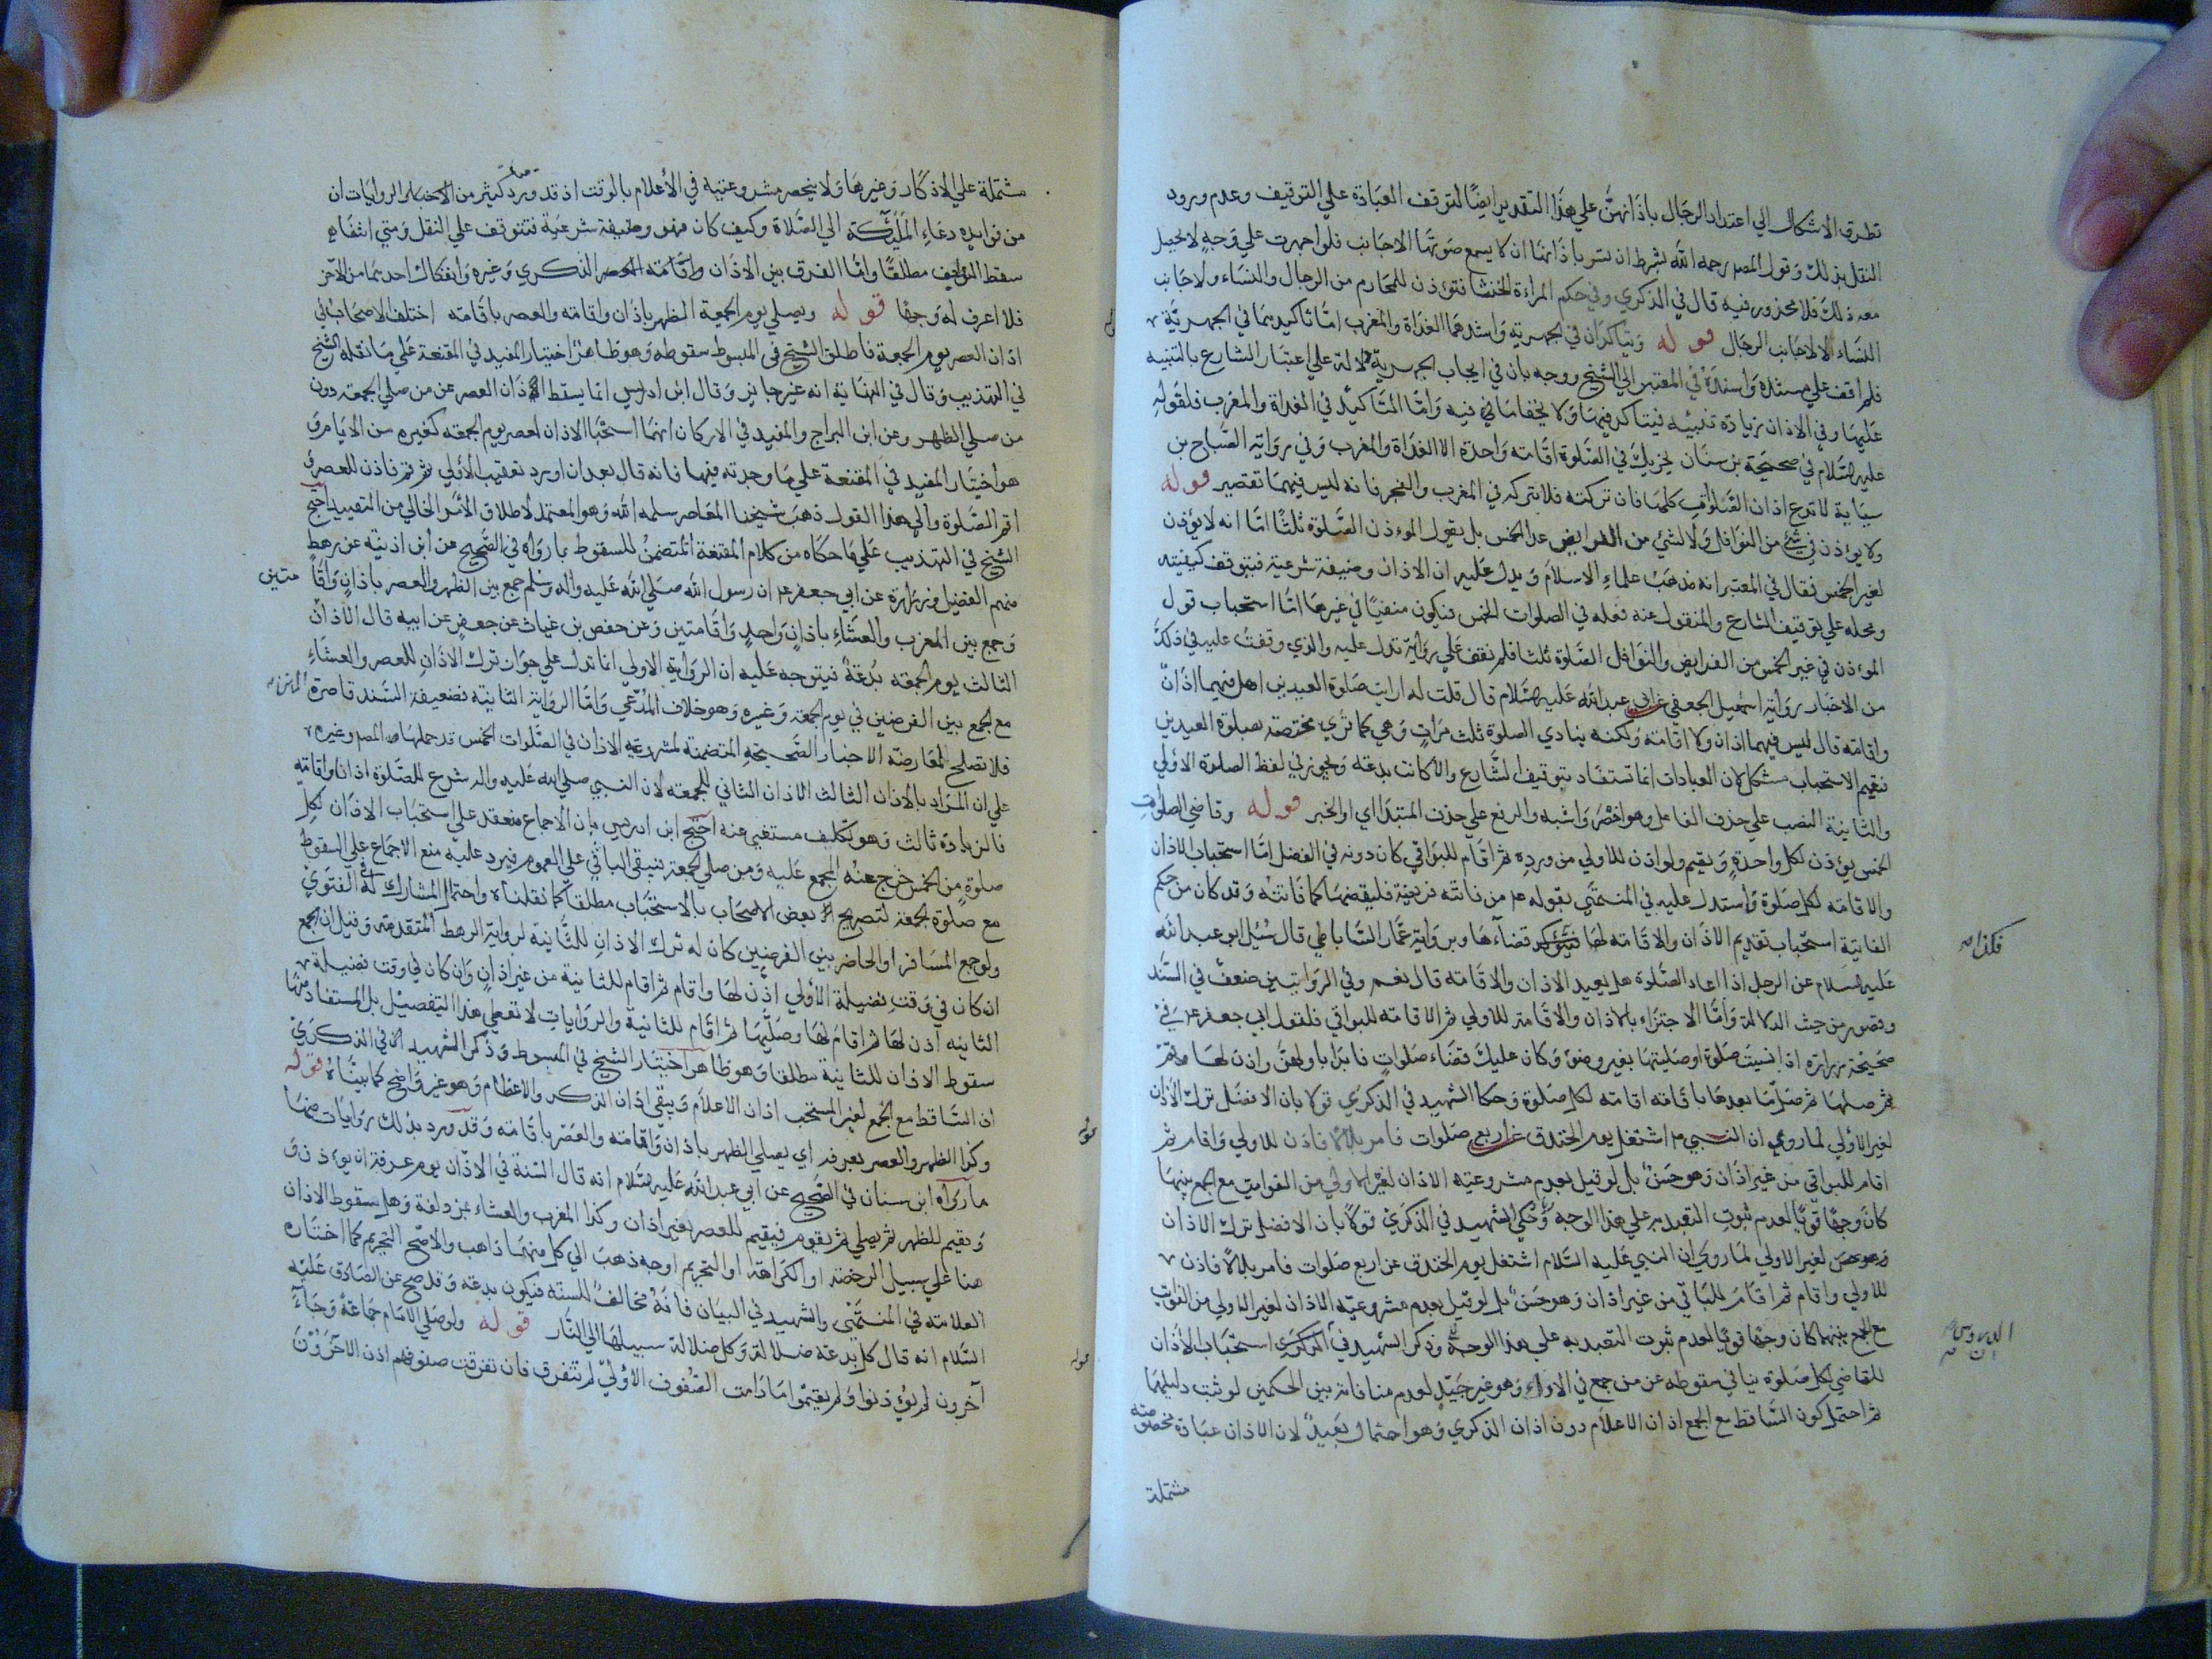 تطرق الاشكال الي اعتداد الرجال باذانهن علي هذا التقدير ايضًا لتوقف العبادة علي التوقيف وعدم ورود
النقل بذلك وقول المصر رحمه الله بشرط ان تسر باذانها ان لا يسمع صوتها الاجانب فلو اجهرت علي وجه لا يحصل
معه ذلك فلا محذور فيه قال في الذكري وفي حكم المراءة الخنثا فتؤذن للمحارم من الرجال والنساء ولاجانب
النساء لا لاجانب الرجال قوله ويتاكدان في الجهرية واشدهما الغداة والمغرب امّا تاكيدهما في الجهرية
فلم اقف علي مستنده واسنده في المعتبر الي الشيخ ووجه بان في ايجاب الجهرية دلالة علي اعتبار الشارع بالتنبيه
عليها وفي الاذان زيادة تنبيه فيتاكد فيها ولا يخفا ما في فيه وامّا التاكيد في الغداة والمغرب فلقوله
عليه السّلام في صحيحة بن سنان يجزيك في الصّلوة اقامة واحدة الا الغداة والمغرب وفي رواية الصّباح بن
سيابة لا تدع اذان الصّلوات كلها فان تركته فلا تتركه في المغرب والفجر فانه ليس فيهما تقصير قوله
ولا يؤذن في شئ من النوافل ولا لشئ من الفرايض عدا الخمس بل يقول المؤذن الصّلوة ثلثًا امّا انه لا يؤذن
لغير الخمس فقال في المعتبر انه مذهب علماء الاسلام ويدل عليه ان الاذان وضيفة شرعية فيتوقف كيفيته
ومحله علي توقيف الشارع والمنقول عنه فعله في الصلوات الخمس فيكون منفيًا في غيرها امّا استحباب قول
المؤذن في غير الخمس من الفرايض والنوافل الصّلوة ثلثا فلم نقف علي رواية تدل عليه والذي وقفت عليه في ذلك
من الاخبار رواية اسمعيل الجعفي عن ابي عبد الله عليه السّلام قال قلت له ارايت صلوة العيدين هل فيهما اذان
واقامة قال ليس فيهما اذان ولا اقامة ولكنه ينادي الصلوة ثلث مرات وهي كما تري مختصة بصلوة العيدين
فتعميم الاستحباب مشكل لان العبادات انما تستفاد بتوقيف الشّارع والا كانت بدعة ويجوز في لفظ الصلوة الاولي
والثانية النصب علي حذف الفاعل وهو احضرُ واشبه والرفع علي حذف المبتدا اي او الخبر قوله وقاضي الصلوات
الخمس يؤذن لكل واحدةٍ ويقيم ولو اذن للاولي من ورده ثم اقام للبواقي كان دونه في الفضل امّا استحباب الاذان
والاقامة لكل صلوة واستدل عليه في المنتهي بقوله ع من فاتته فريضة فليقضها كما فاتته وقد كان من حكم
الفاتية استحباب تقديم الاذان والاقامة لها قضآءها وبرواية عمّار السّاباطي قال سُئل ابو عبد الله
فكذا
عليه السّلام عن الرجل اذا اعاد الصّلوة هل يعيد الاذان والاقامة قال نعم وفي الروايتين ضعفٌ في السّند
وقصور من حيث الدلالة وامّا الاجتزاء بالاذان والاقامة للاولي ثم الاقامة للبواقي فلقول ابي جعفر ع في
صحيحة زرارة اذا نسيت صلوة او صليتها بغير وضوء وكان عليك قضاء صلوات فابدا باولهن واذن لها
ثم صلها ثم صلّ ما بعدها باقامة اقامة لكل صلوة وحكا الشهيد في الذكري قولا بان الافضل ترك الاذان
لغير الاولي لما روي ان النبي م اشتغل يوم الخندق عن اربع صلوات فامر بلالًا فاذن للاولي واقام ثم
اقام للبواقي من غير اذان وهو حسنٌ بل لو قيل بعدم مشروعيته الاذان لغير الاولي من الفوايت مع الجمع بينها
كان وجهًا قويًا لعدم ثبوت التعبد به علي هذا الوجه وحُكي الشهيد في الذكري قولًا بان الافضل ترك الاذان
لغير الاولي لما روي ان النبي عليه السّلام اشتغل يوم الخندق عن اربع صلوات فامر بلالًا فاذن
للاولي واقام ثم اقام للباقي من غير اذان وهو حسنٌ بل لو قيل بعدم مشروعيته الاذان لغير الاولي من الفوايت
مع الجمع بينهما كان وجهًا قويًا لعدم ثبوت التعبد به علي هذا الوجه وذكر الشهيد في الذكري استحباب الاذان
للقاضي لكل صلوة ينافي سقوطه عن من جمع في الاداء وهو غير جيّدٍ لعدم منافاة بين الحكمين لو ثبت دليلهما
ثم احتمل كون السّاقط مع الجمع اذان الاعلام دون اذان الذكري وهو احتمالٌ بعيدٌ لان الاذان عبادة مخصوصة
مشتملة
مشتملة علي الاذكار وغيرها ولا ينحصر مشروعتيه في الأعلام بالوقت اذ قد ورد كثير من الروايات ان
من فوايده دعاء الملئكة الي الصّلاة وكيف كان فهو وضيفة شرعية فتتوقف علي النقل ومتي انتفاء
سقط التوظيف مطلقًا وامّا الفرق بين الاذان واقامة الذكري وغيره وانفكاك احديهما من الآخر
فلا اعرف له وجهًا قوله ويصلي يوم الجمعة الظهر باذان واقامة والعصر باقامة اختلف الاصحاب في
اذان العصر يوم الجمعة فاطلق الشيخ في المبسوط سقوطه وهو ظاهر اختيار المفيد في المقنعة علي ما نقله الشيخ
في التهذيب وقال في النهاية انه غير جايز وقال ابن ادريس انما يسقط اذان العصر عن من صلي الجمعة دون
من صلي الظهر وعن ابن البراج والمفيد في الاركان انهما استحبّا الاذان لعصر يوم الجمعه كغيره من الايام وَ
هو اختيار المفيد في المقنعة علي ما وجدته فيها فانه قال بعد ان اورد تعقيب الأولي ثم قم فاذن للعصر و
اقم الصّلوة والي هذا القول ذهب شيخنا المعاصر سلمه الله وهو المعتمد لأطلاق الأمر الخالي من التقييد احتج
الشيخ في التهذيب علي ما حكاه من كلام المقنعة المتضمن للسقوط بما رواه في الصّحيح عن ابن اذنية عن رهط
منهم الفضيل وزرارة عن ابي جعفر ع ان رسول الله صلي الله عليه واله وسلم جمع بين الظهر والعصر باذان واقا متين
وجمع بين المغرب والعشاء باذان واحدٍ واقامتين وعن حفص بن غياث عن جعفر عن ابيه قال الاذان
الثالث يوم الجمعه بدعةٌ فيتوجه عليه ان الرواية الاولي انما تدل علي جواز ترك الاذان للعصر والعشاء
مع الجمع بين الفرضين في يوم الجمعة وغيره وهو خلاف المدّعي وامّا الرواية الثانية فضعيفة السّند قاصرة المتن
فلا تصلح لمعارضة الاخبار الصّحيحة المتضمنة لمشروعيه الاذان في الصّلوات الخمس قد حملها المصر وغيره
علي ان المراد بالاذان الثالث الاذان الثاني للجمعه لان النبي صلي الله عليه واله شرع للصّلوة اذانًا واقامة
فالزيادة ثالث وهو تكلف مستغني عنه احتج ابن ادريس بان الأجماع منعقد علي استحباب الاذان لكل
صلوةٍ من الخمس خرج عنه المجمع عليه ومن صلي الجمعة فيبقي الباقي علي العموم فيرد عليه منع الاجماع علي السقوط
مع صلوة الجمعة لتصريح بعض الاصحاب بالاستحباب مطلقًا كما نقلناه واحتمال المشارك له في الفتوي
ولو جمع المسافر او الحاضر بين الفرضين كان له ترك الاذان للثّانية لرواية الرهط المتقدمة وقيل ان الجمع
ان كان في وقت فضيلة الأولي اذّن لها واقام ثم اقام للثانية من غير اذانٍ وان كان في وقت فضيلة
الثانيه اذن لها ثم اقام لها وصلّيها ثم اقام للثانية والروايات لا تعطي هذا التفصيل بل المستفاد منها
سقوط الاذان للثانية مطلقا وهو ظاهر اختيار الشيخ في المبسوط وذكر الشهيد في الذكري
ان السّاقط مع الجمع لغير المستحب اذان الاعلام ويبقي اذان الذكر والاعظام وهو غير واضح كما بيّناه قوله
وكذا الظهر والعصر بعرفة اي يصلي الظهر باذان واقامة والعصر باقامة وقد ورد بذلك روايات منها
ما رواه ابن سنان في الصّحيح عن ابي عبد الله عليه السّلام انه قال السّنة في الاذان يوم عرفة ان يؤذن و
ويقيم للظهر ثم يصلي ثم يقوم فيقيم للعصر بغير اذان وكذا المغرب والعشاء بمزدلفة وهل سقوط الاذان
هنا علي سبيل الرخصة او الكراهة او التحريم اوجه ذهب الي كل منهما ذاهب والاصّح التحريم كما اختاره
العلامة في المنتهي والشهيد في البيان فانه مخالفٌ للسنة فيكون بدعة وقد صح عن الصّادق عليه
السّلام انه قال كل بدعة ضلالة وكل ضلالة سبيلها الي النّار قوله ولو صلي الامام جماعةً وجآءَ
آخرون لم يؤذنوا ولم يقيموا ما دامت الصّفوف الأولي لم تتفرق فان تفرقت صفوفهم اذن الآخرون